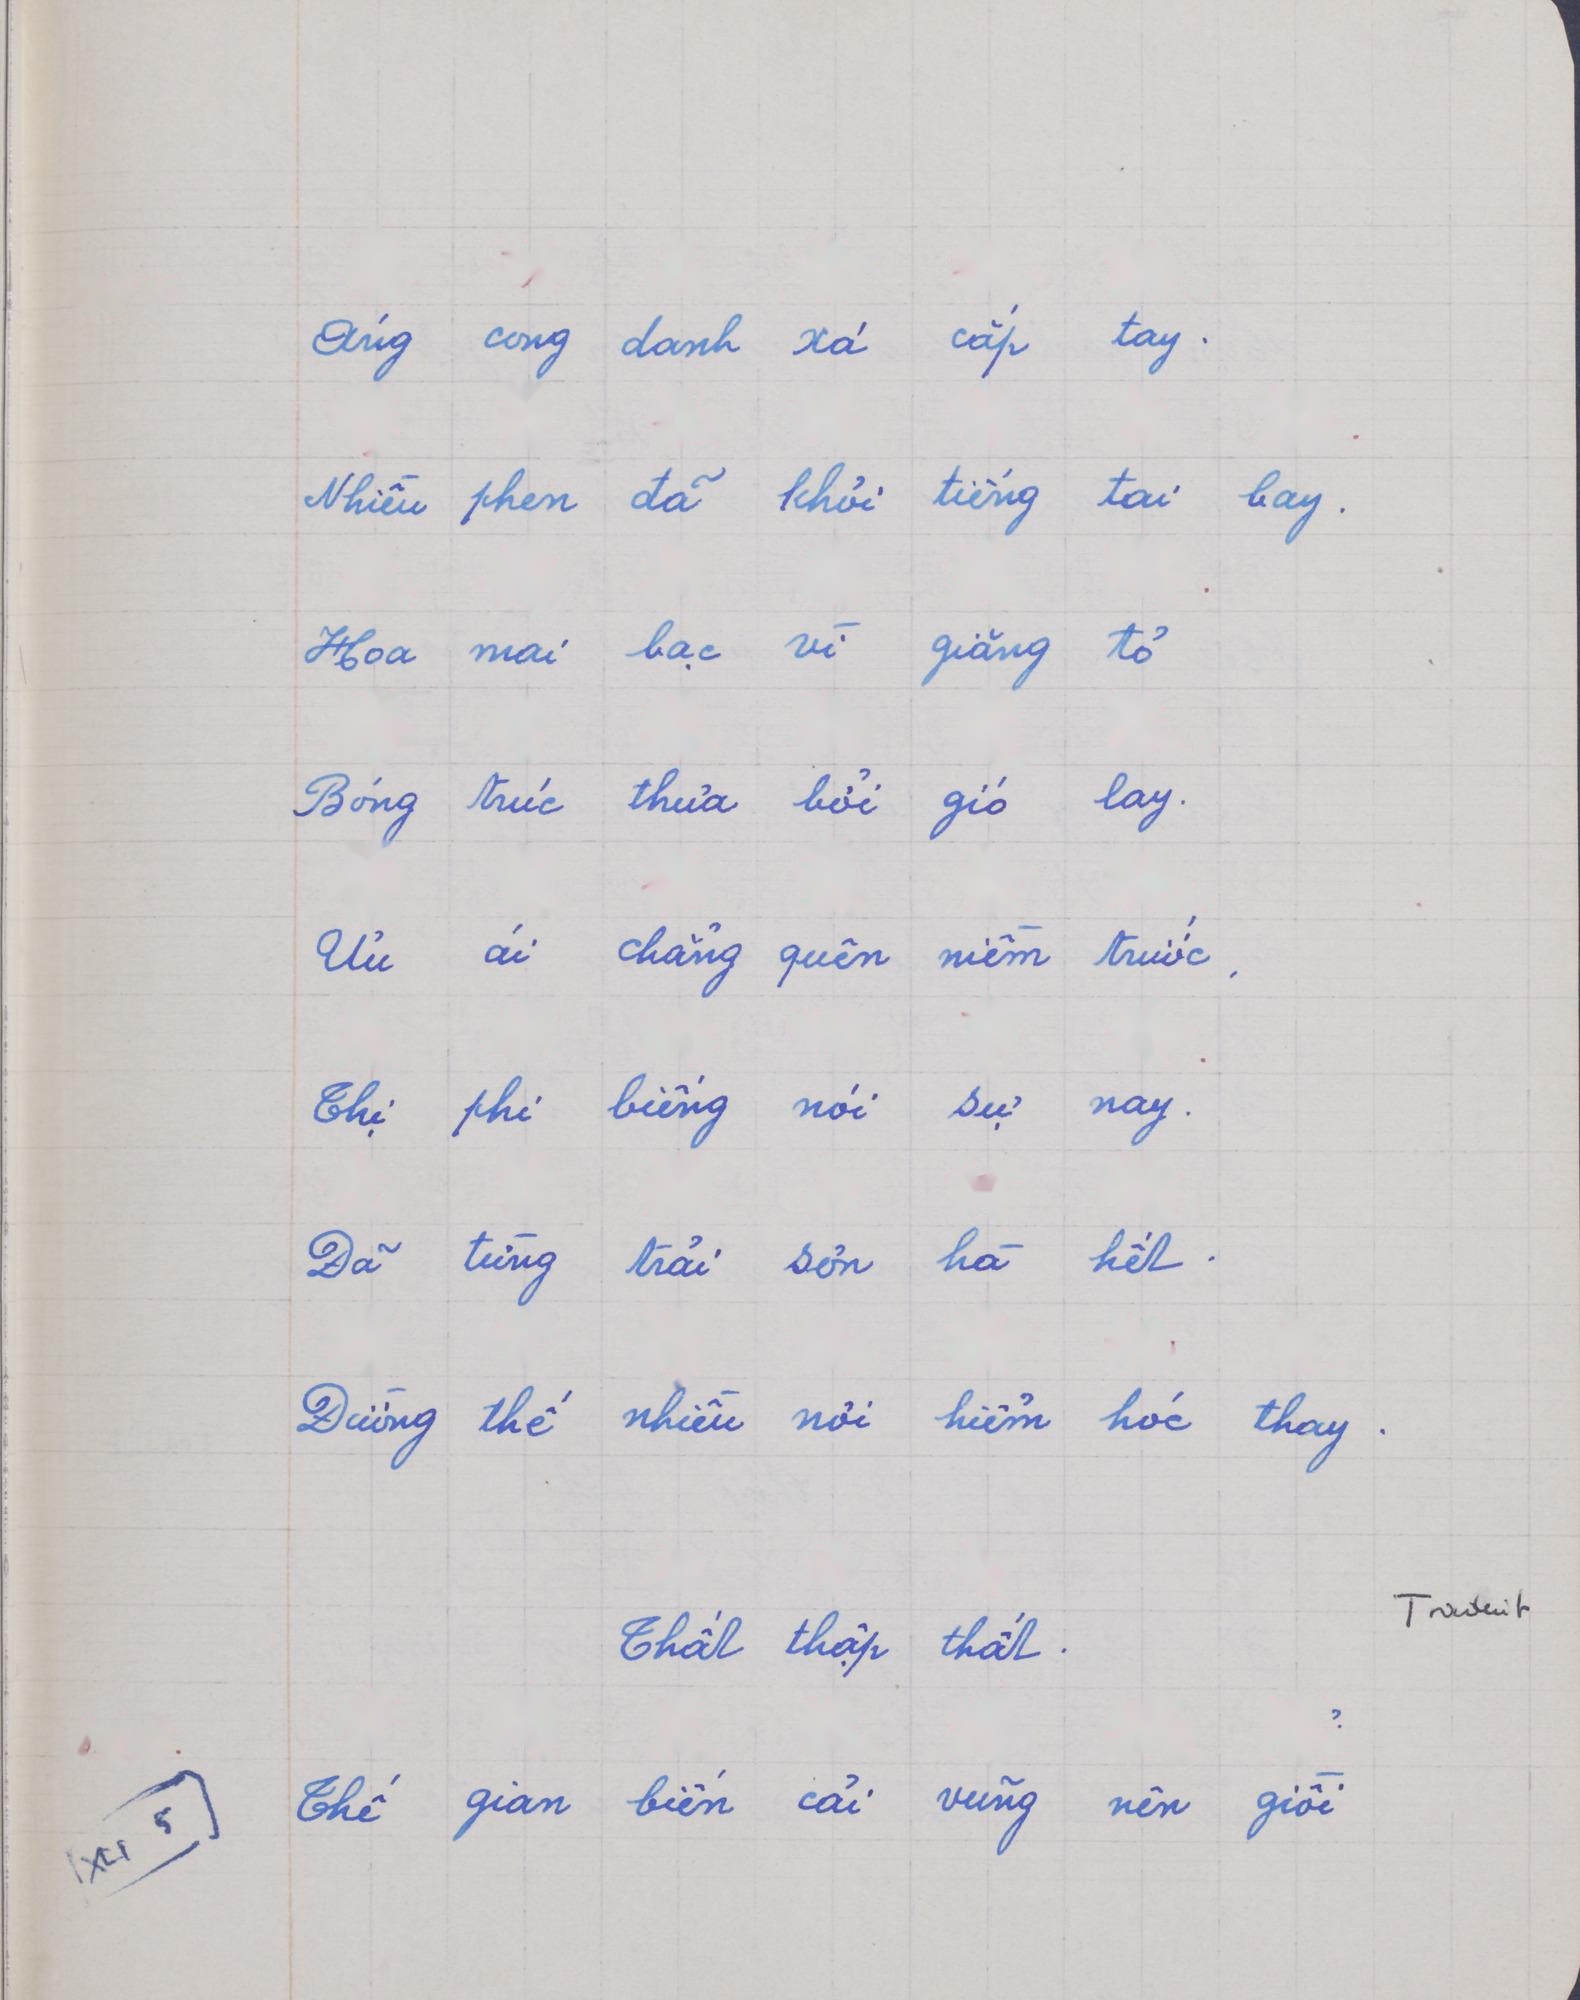 Áng cong danh xá cắp tay.
Nhiều phen đã khỏi tiếng tai bay.
Hoa mai bạc vì giăng tỏ
Bóng trúc thưa bởi gió lay.
Ưu ái chẳng quên niềm trước,
Thị phi biếng nói sự nay.
Đã từng trải sơn hà hết.
Đường thế nhiều nơi hiểm hóc thay.
Traduit
Thất thập thất.
?
Thế gian biến cải vũng nên giồi
XLI 5